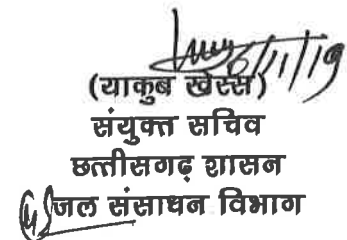 6/11/19
(याकुब खेस्स)
संयुक्त सचिव
छत्तीसगढ़ शासन
जल संसाधन विभाग